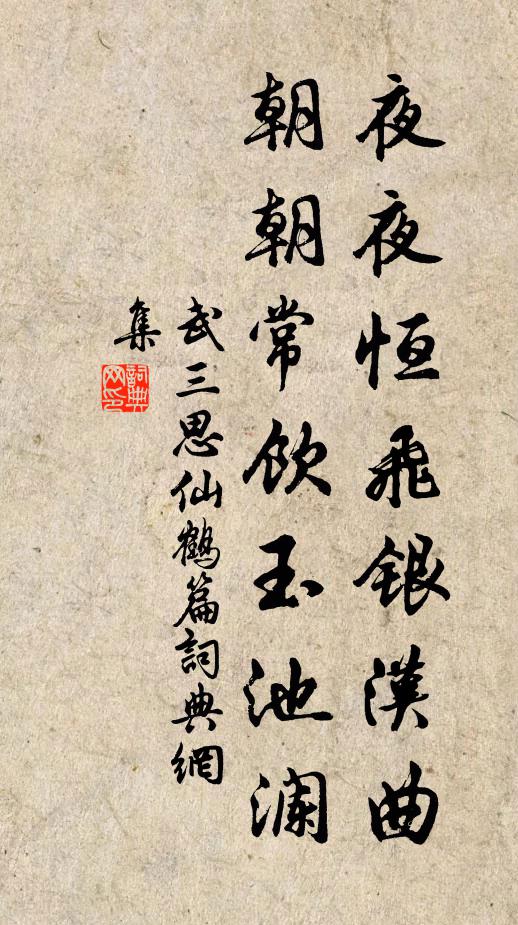 夜夜恒飛銀漢曲
朝朝常飲玉池瀾
武三思仙鶴篇詞典網
集
詞典網印